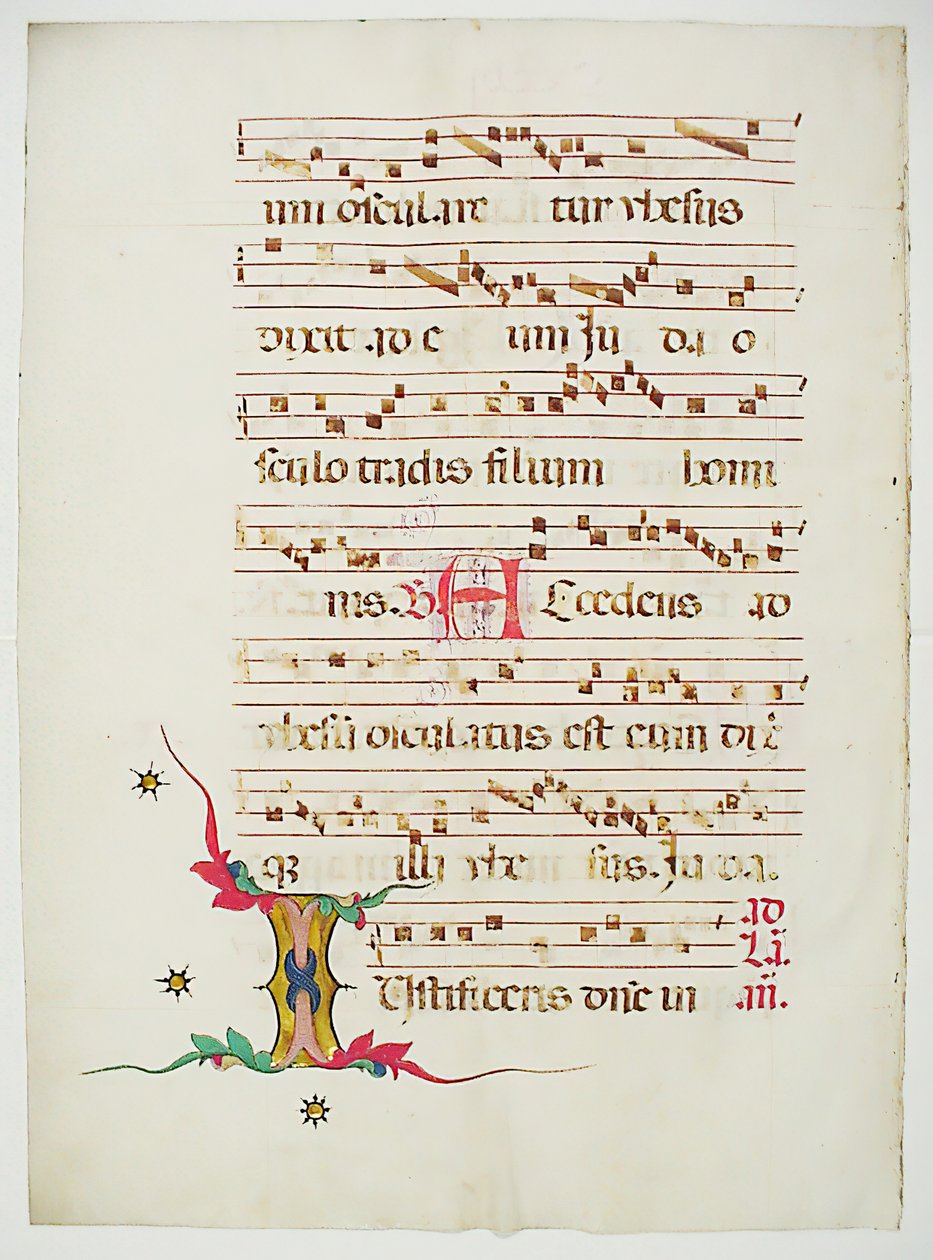 um oscularetur yhesus
dixit ad eum Juda o
sculo tradis filium homi
nis. ℟. Accedens ad
yhesu osculatus est eum dix̄
qȝ illi yhesus. Juda.
Iustificeris dn̄e in ad
La.